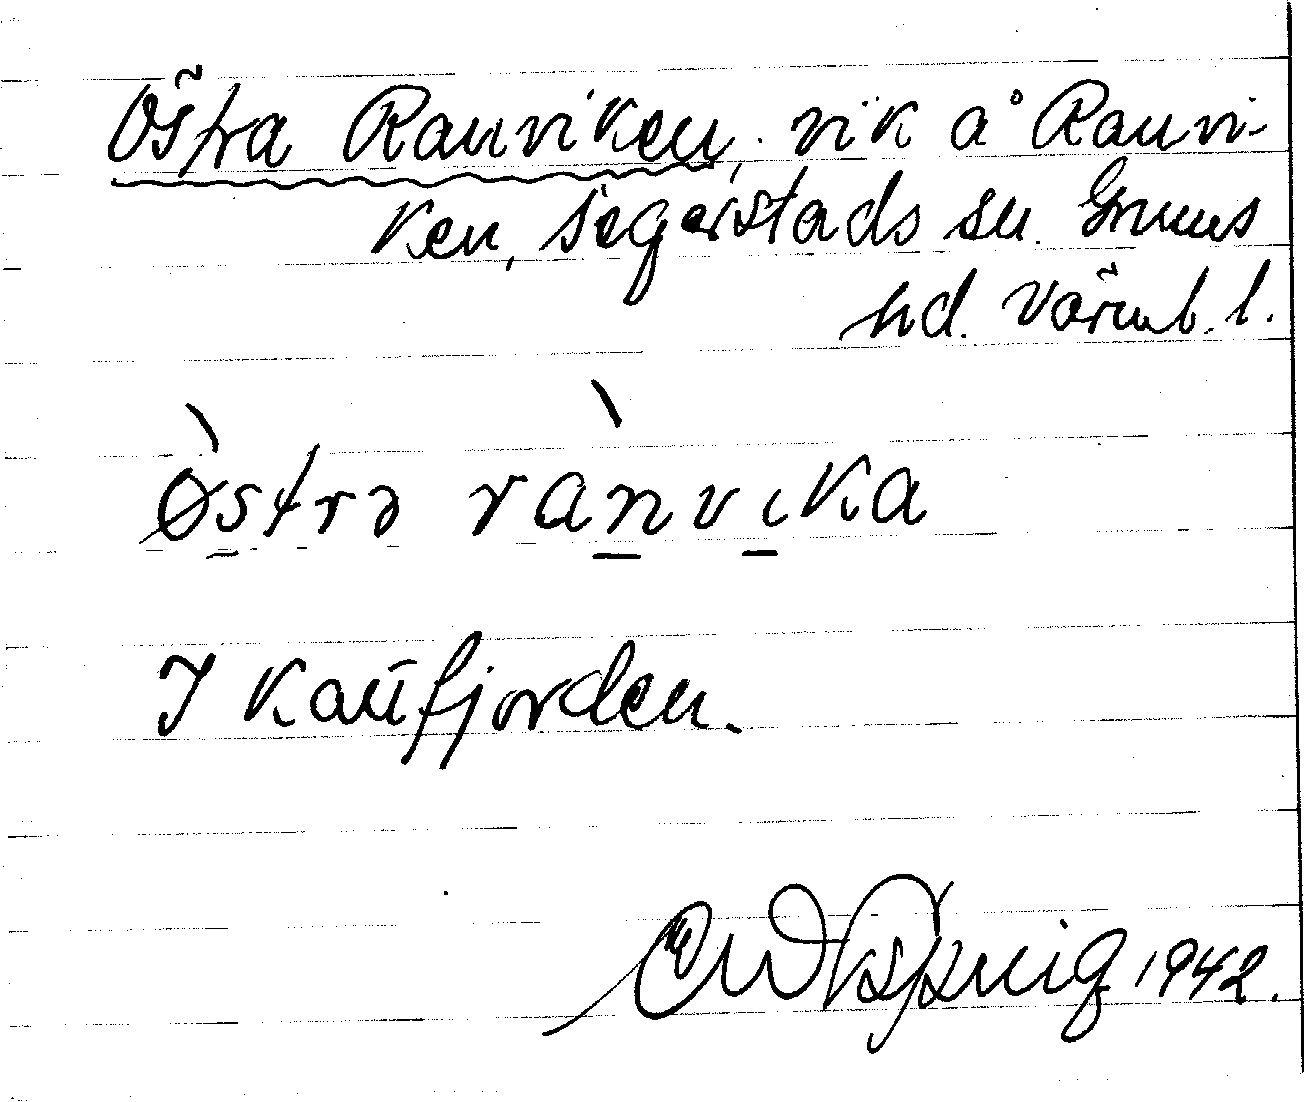 Östra Ranviken, vik å Ranvi-
ken, Segerstads sn. Grums
hd. Värml. l.
östrə ranvika
I Kattfjorden.
1942.